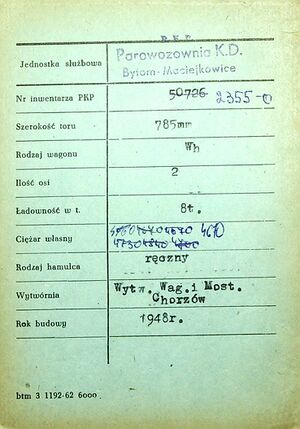 P.K.P.
Jednostka służbowa Parowozownia K.D.
Bytom-Maciejkowice
Nr inwentarza PKP 50726 2355-0
Szerokość toru 785mm
Rodzaj wagonu Wh
Ilość osi 2
Ładowność w t. 8t.
Ciężar własny 4670
Rodzaj hamulca ręczny
Wytwórnia Wytw. Wag.i Most.
Chorzów
Rok budowy 1948r.
btm 3 1192-62 6000